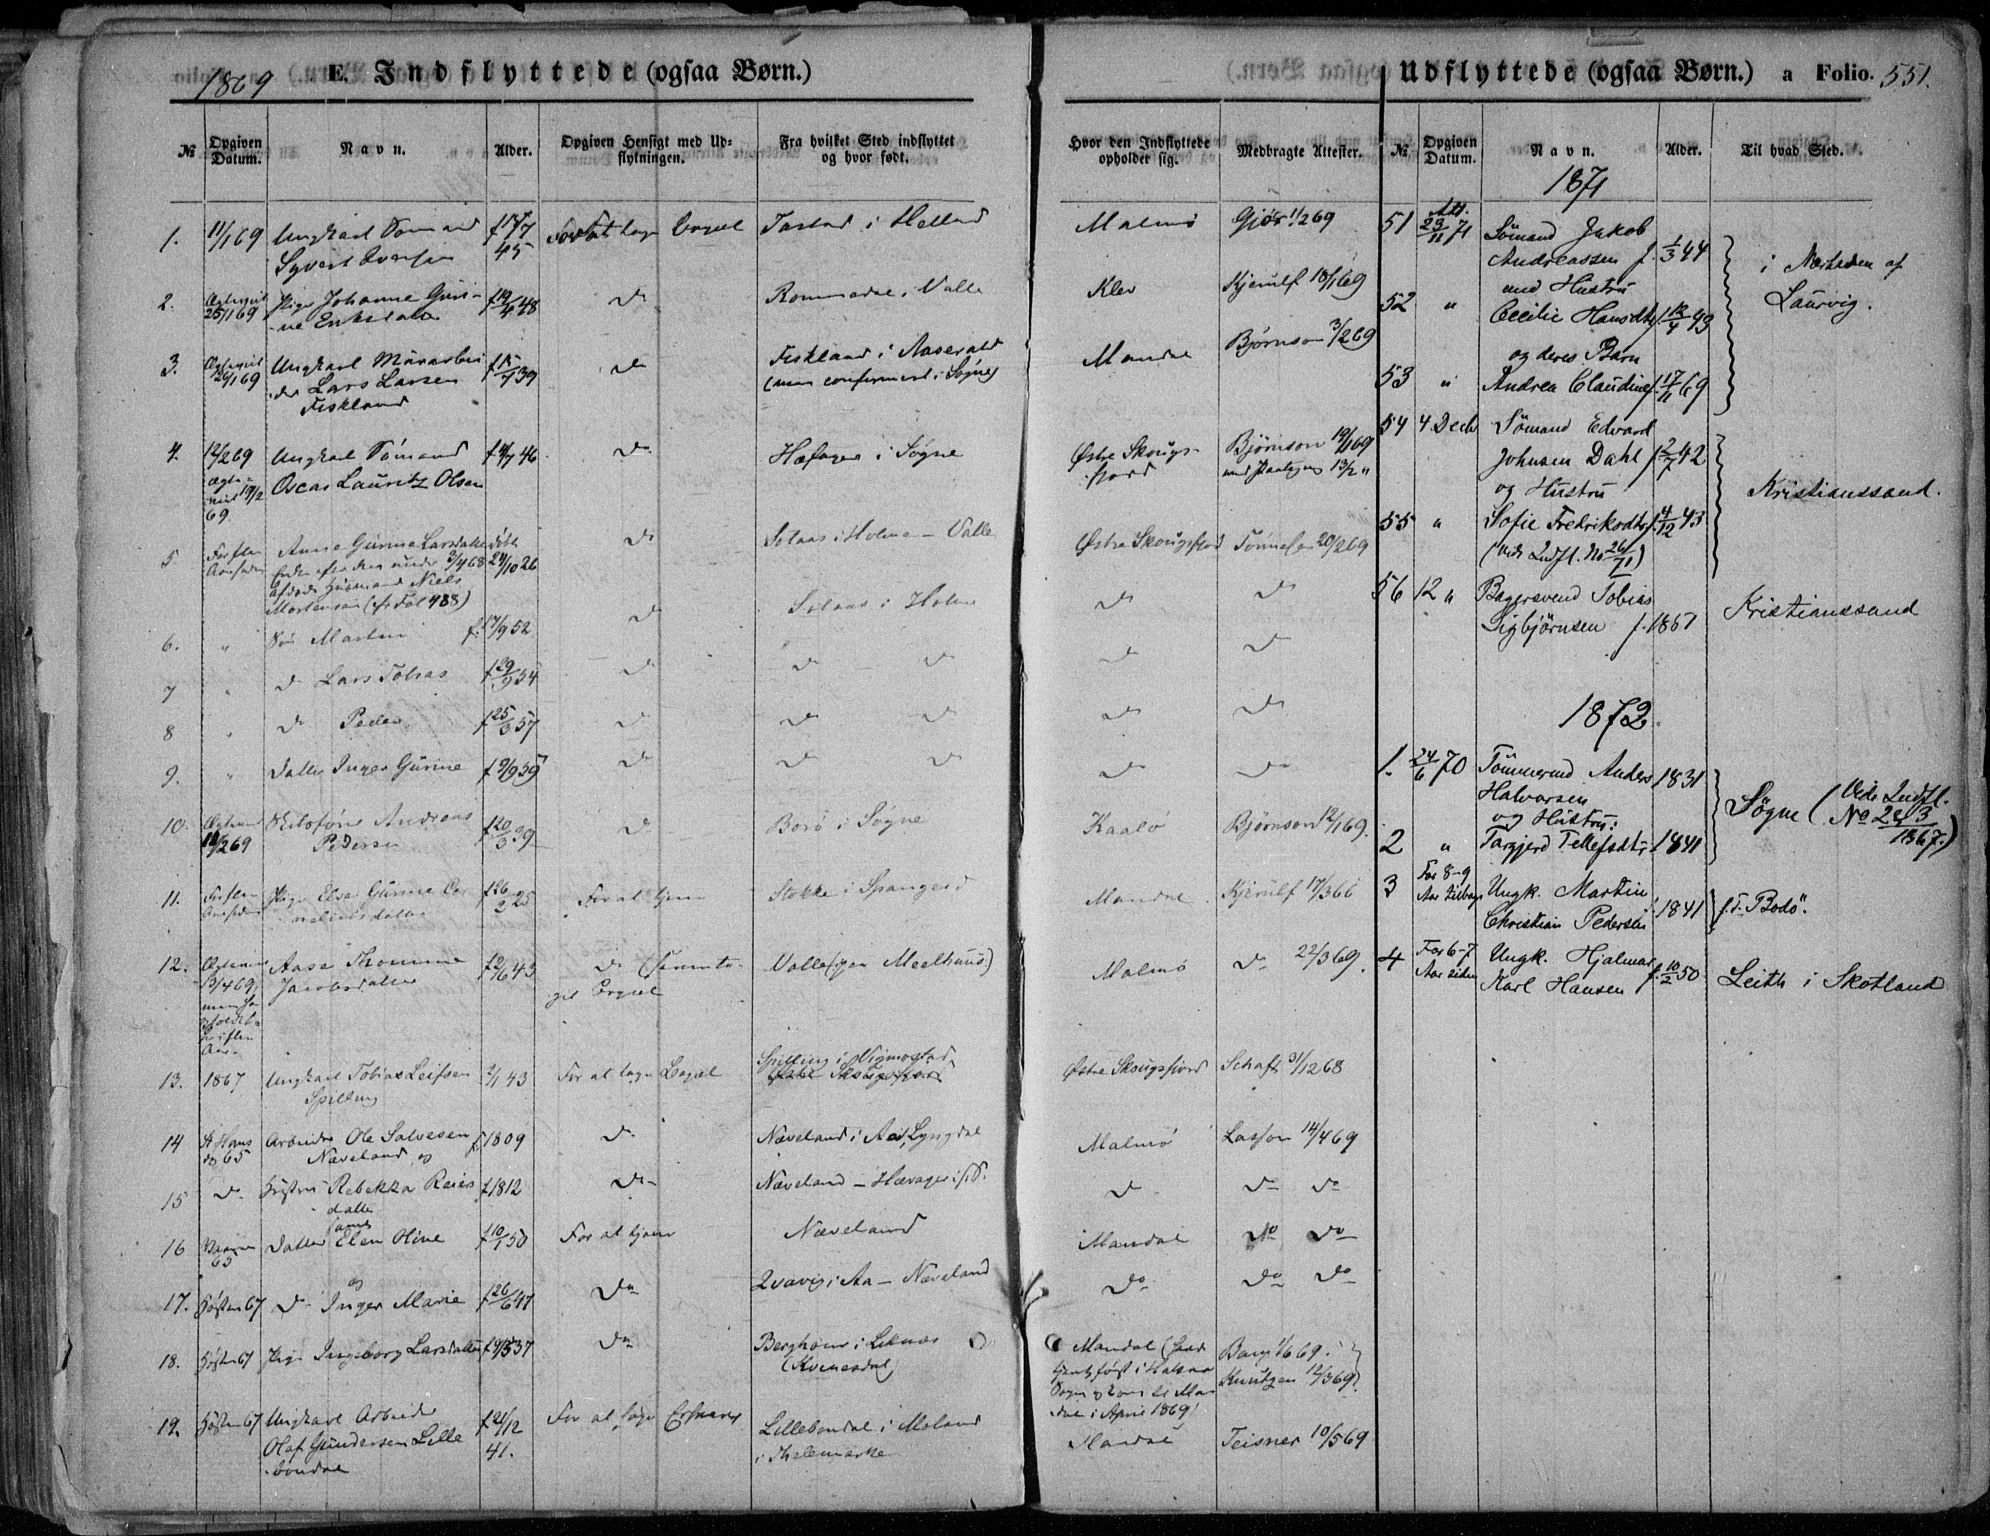 1869
E. Indflyttede (ogsaa Børn.)
№
Opgiven Datum.
Navn.
Alder.
Opgiven Hensigt med Udflytningen.
Fra hvilket Sted indflyttet og hvor født.
1. 11/1 69 Ungkarl Sömand
Syvert Evensen 45
2. 25/1 69 Pige Johanne Guri-
ne Eriksdatter f 19/4 48 Do Rommedal i Valle
3. 26/1 69 Ungkarl Murarbei
der Lars Larsen f 15/7 39 Do Fiskland i Aaserald
Fiskland (men confirmert i Søgne)
4. 12/2 69 Ungkarl Sömand f 4/7 46 Do Høfager i Søgne
Oscar Lauritz Olsen
69
5 Anne Gurine Larsdatter født 24/10 26 Do Solaas i Holme - Valle
Enke efter den under 3/4 68
afdøde Huusmand Niels
Mortensen (cfr Fol 488)
6. " Søn Martin f. 17/9 52 Do Solaas i Holme
7 " Do Lars Tobias f 29/9 54 Do Do Do
8 " Do Peder f 25/3 57 Do Do Do
9. " Datter Inger Gurine f 9/9 59 Do Do Do
10. 16/2 69 Andreas
Pedersen f 20/3 39 Do Borö i Søgne
11. Pige Else Gurine f 26/2 25 For at tjene Stokke i Spangerd
12. 13/4 69 Aase Thomine
Jacobsdatter f 2/6 43 Do Valle (gen Meelhuus)
13. 1867 Ungkarl Tobias Leifsen 2/1 43 For at søge Logis Spilling i Vigmostad
Spilling
14 St Hans 65 Arbeider Ole Salvesen f. 1809 Do Næveland i Aa, Lyngdal
Næveland, og
15 Do Hustru Rebekka Reiers
datter f 1812 Do Næveland - Hævager i s. P.
samt
16 65 Datter Elen Oline f 10/1 50 For at tjene Næveland
og
17. Høsten 67 Do Inger Marie f 26/6 47 Do Qvavig i Aa - Næveland
18. Høsten 67 Pige Ingeborg Larsdatter f 9/5 37 Do Berghom i Leknæs
(Kvinesdal)
19. Høsten 67 Ungkarl Arbeider f 21/12
Olaf Gundersen Lille 41. For at søge Erhverv Lillebondal i Moland
bondal i Thelemarke
Hvor den Indflyttede opholder sig.
Medbragte Attester.
Malmö Gjør 11/2 69
Klev Kjerulf 18/1 69
Mandal Bjørnson 3/2 69
Østre Skougs-
fjord Bjørnson 19/1 69
med Paategn 13/2 "
Østre Skougsfjord Tönnesen 20/2 69
Do Do
Do Do
Do Do
Do Do
Kaalö Bjørnson 12/1 69.
Mandal Kjerulf 17/3 66
Malmö Do 22/3 69.
Østre Skougsfjord Schaft 31/12 68
Malmö Lasson 14/4 69
Do Do Do
Mandal Do Do
Do Do Do
Mandal (havde
tjent først i Halsaa
Sogn og kom til Man
dal i April 1869) Bang 1/6 69.
Knutzen 12/3 69
Mandal Teisner 10/5 69
Udflyttede (ogsaa Børn.) a Folio. 551.
№
Opgiven Datum.
Navn.
Alder.
Til hvad Sted.
1871
51 Att. 23/11 71 Sömand Jakob
Andreassen f. 1/3 44 i Nærheden af
med Hustru Laurvig.
52 " Cecilie Hansdtr f. 12/4 43
og deres Barn
53 " Andrea Claudine f. 17/11 69
54 4 Decbr Sömand Edvard
Johnsen Dahl f. 2/7 42
og Hustru Kristianssand.
55 " Sofie Fredriksdtr f. 4/12 43
(Vide Indfl. No 26/71)
56 12 " Bagersvend Tobias
Sigbjörnsen f. 1867 Kristianssand
1872.
1. 24/6 70 Tömmermd Anders 1831
Halvorsen
og Hustru: Søgne (Vide Indfl.
No 22/3 1867.)
2 " Targjerd Tellefsdtr 1841
3 For 8-9
Aar tilbage Ungk. Martin
Christian Pedersen 1841 f. T. "Bodö".
4 For 6-7
Aar siden Ungk. Hjalmar
Karl Hansen f. 10/2 50 Leith i Skotland